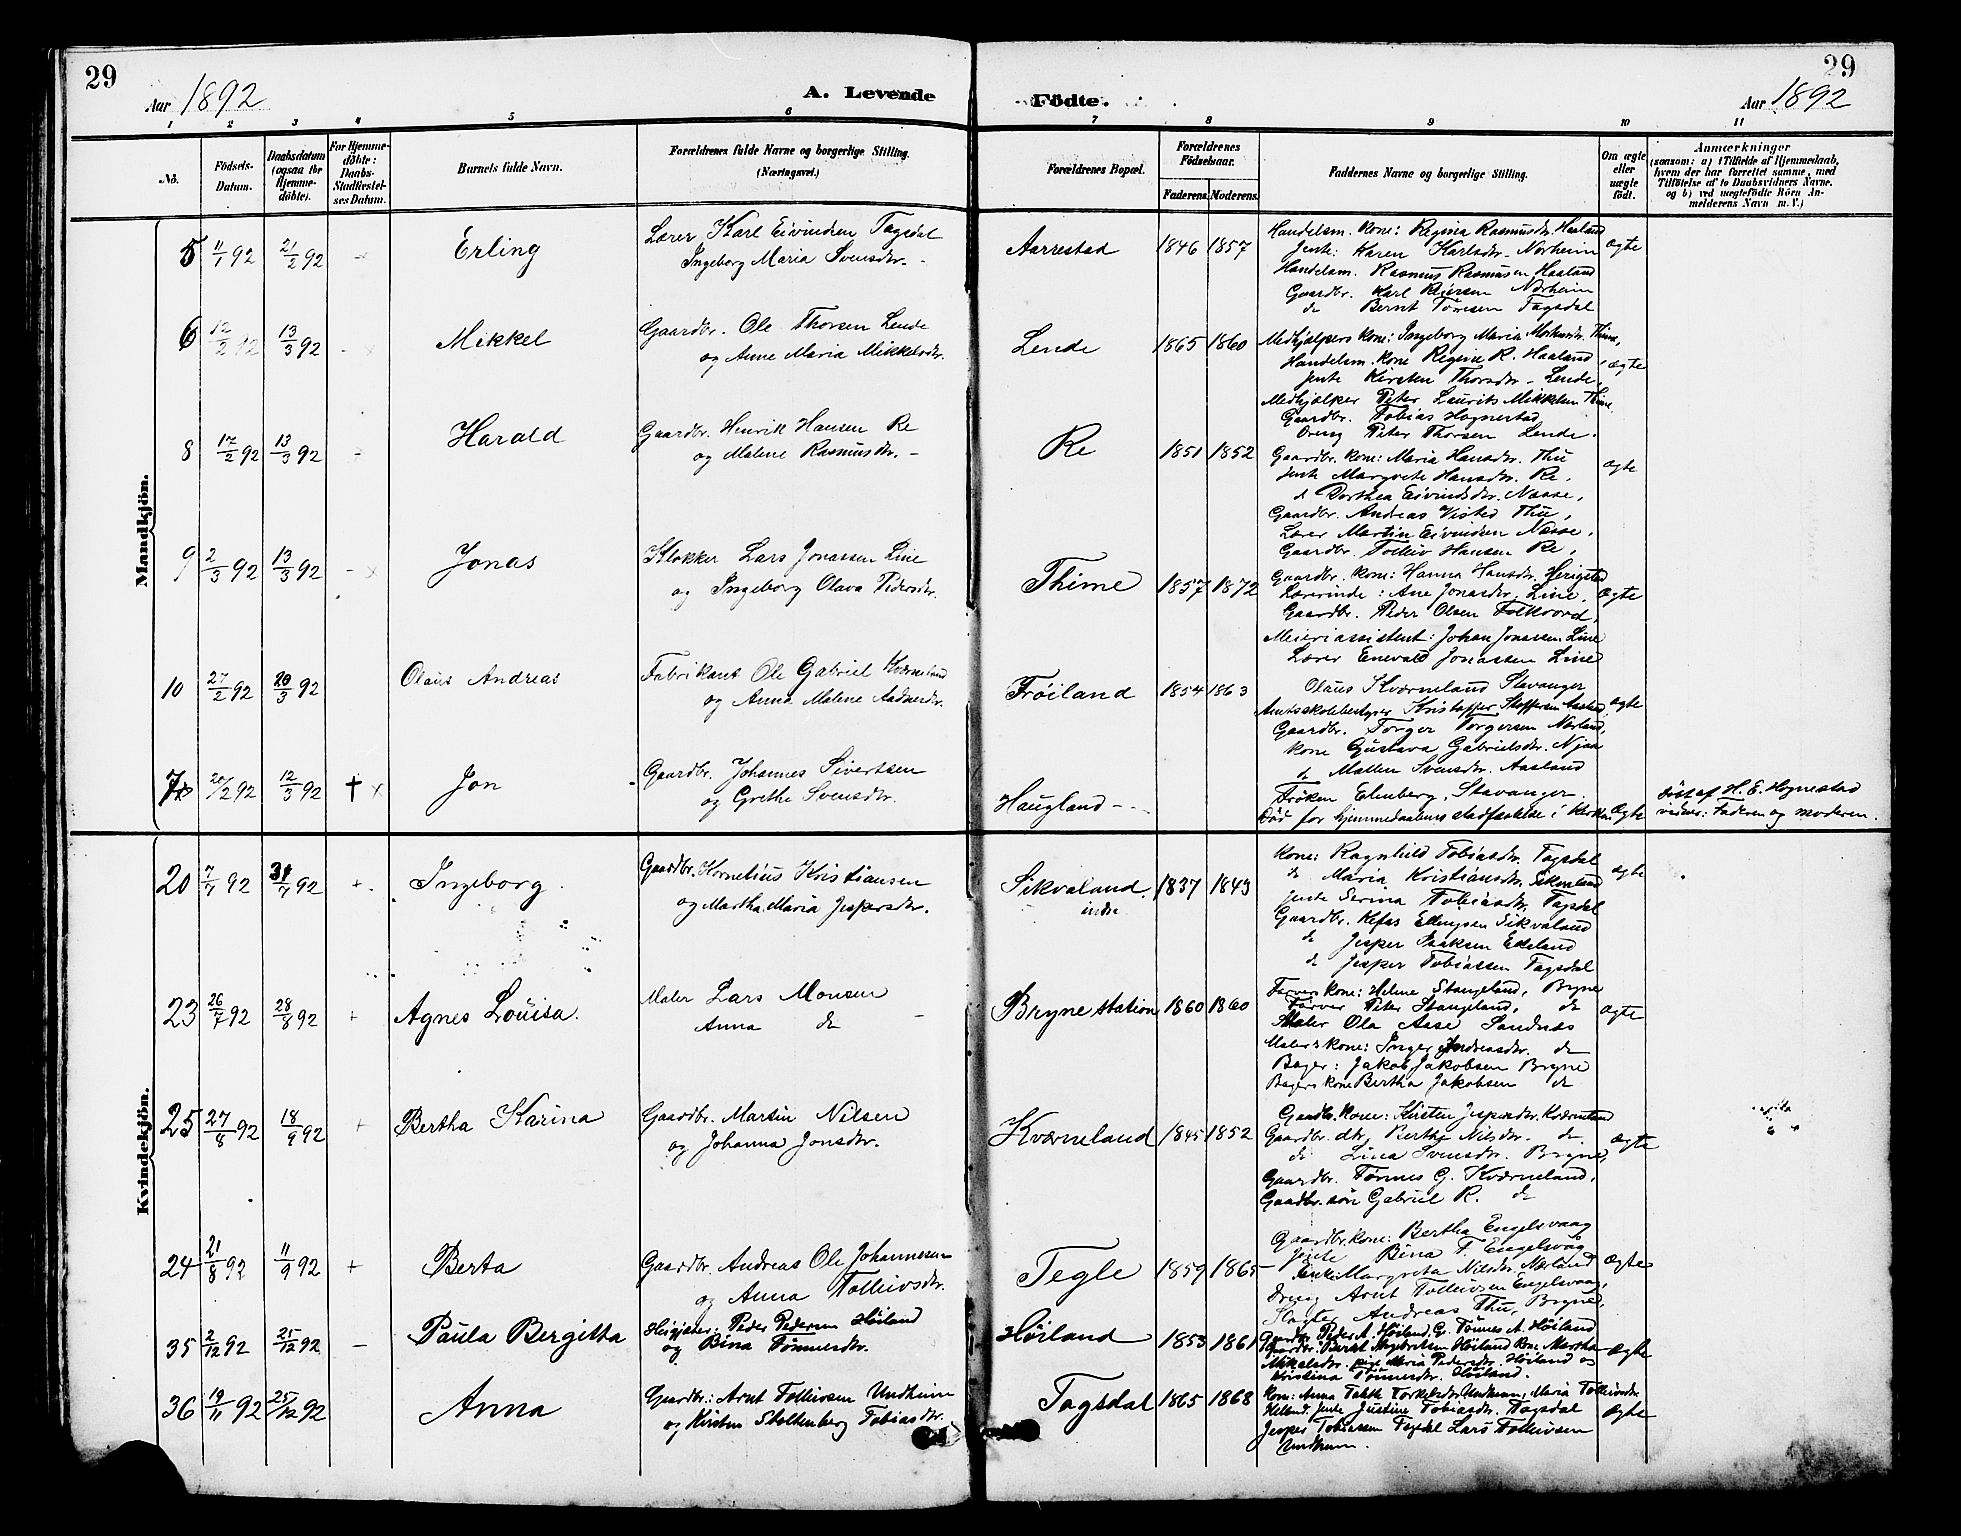 29
Aar 1892
A. Levende
Födte.
29
Aar 1892
1 2 3 4 5 6 7 8 9 10 11
No.
Födsels-
Datum.
Daabsdatum
(ogsaa for
Hjemme-
döbte).
For Hjemme-
döbte:
Daabs-
Stadfæstel-
ses Datum.
Barnets fulde Navn.
Forældrenes fulde Navne og borgerlige Stilling.
(Næringsvei.)
Forældrenes Bopæl.
Forældrenes
Födselsaar.
Faderens. Moderens.
Faddernes Navne og borgerlige Stilling.
Om ægte
eller
uægte
född.
Anmærkninger
(saasom: a) i Tilfælde af Hjemmedaab,
hvem der har forrettet samme, med
Tilföielse af to Daabsvidners Navne.
og b) ved uægtefödte Börn An-
melderens Navn m. V.)
Mandkjön.
5 11/1 92 21/2 92 Erling
Lærer Karl Eivindsen Tagsdal
Ingeborg Maria Svensdr. -
Aarrestad 1846 1857
Handelsm. kone: Regina Rasmusdr. Haaland
Jente: Karen Karlsdr. Norheim
Handelsm. Rasmus Rasmusen Haaland
Gaardbr. Karl Reiersen Norheim
do Bernt Tönnesen Tagsdal
ægte
6 12/2 92 13/3 92 Mikkel
Gaardbr. Ole Thorsen Lende
og Anne Maria Mikkelsdr.
Lende 1865 1860
Medhjælpers kone: Ingeborg Maria Thime,
Handelsm. kone Regine R. Haaland
Jente Kirsten Thorsdr. Lende,
Medhjælper Peter Laurits Mikkelsen Thime
Gaardbr. Tobias Hognestad
Dreng Peter Thorsen Lende.
ægte
8 17/2 92 13/3 92 Harald
Gaardbr. Henrik Hansen Re
og Malene Rasmusdr. -
Re 1851 1852
Gaardbr. kone: Maria Hansdr. Thu
Jente Margrete Hansdr. Re,
d Dorthea Eivindsdr. Næsse,
Gaardbr. Andreas Visted Thu,
Lærer Martin Eivindsen Næsse,
Gaardbr. Tolleiv Hansen Re,
ægte
9 2/3 92 13/3 92 Jonas
Klokker Lars Jonassen Line
og Ingeborg Olava Pedersdr.
Thime 1857 1872
Gaardbr. kone: Hanna Hansdr. Herigstad
Lærerinde: Ane Jonasdr. Line,
Gaardbr. Peder Olsen Folkvord,
Meieriassistent: Johan Jonassen Line
Lærer Enevald Jonassen Line
ægte
10 27/2 92 20/3 92 Olaus Andreas
Fabrikant Ole Gabriel Kværneland
og Anna Malene Aadnesdr.
Fröiland 1854 1863
Olaus Kværneland Stavanger
Amtsskolebestyrer Kristoffer Aasland,
Gaardbr. Torger Torgersen Norland,
kone Gustava Gabrielsdr. Njaa
do Mallen Svensdr. Aasland
Fröken Elenberg, Stavanger.
ægte
7 20/2 92 12/3 92 † Jon
Gaardbr. Johannes Sivertsen
og Grethe Svensdr.
Haugland
Död før hjemmedaabens stadfæstelse i kirken
ægte
döbt af H. E. Hognestad
vidner: Faderen og moderen.
Kvindekjön.
20 7/7 92 31/7 92 + Ingeborg
Gaardbr. Kornelius Kristiansen
og Martha Maria Jespersdr.
Sikvaland
indre
1837 1843
Kone: Ragnhild Tobiasdr. Tagsdal
do Maria Kristiansdr. Sikvaland
Jente Serina Tobiasdr. Tagsdal
Gaardbr. Kefas Ellingsen Sikvaland
do Jesper Isaksen Eikeland
do Jesper Tobiassen Tagsdal
ægte
23 26/7 92 28/8 92 + Agnes Louisa
Maler Lars Monsen
Anna do
Bryne station 1860 1860
Farvers kone: Helene Stangeland, Bryne
Farver Peter Stangeland, do
Maler Ola Aase Sandnæs
Malers kone: Inger Andreasdr. do
Bager: Jakob Jakobsen Bryne
Bagers kone Bertha Jakobsen do
ægte
25 27/8 92 18/9 92 + Bertha Karina
Gaardbr. Martin Nilsen
og Johanna Jonsdr.
Kværneland 1845 1852
Gaardbr. kone: Kirsten Jespersdr. Kværneland
Gaardbr. dtr. Berthe Nilsdr. do
do Lina Svensdr. Bryne,
Gaardbr. Tönnes G. Kværneland,
Gaardbr. sön Gabriel R. do
ægte
24 21/8 92 11/9 92 + Berta
Gaardbr. Andreas Ole Johannessen
og Anna Tolleivsdr.
Tegle 1859 1865
Gaardbr. kone: Bertha Engelsvaag
Jente Bina T. Engelsvåg
Enke: Margreta Nilsdr. Mæland
Dreng Arnt Tolleivsen Engelsvaag,
Slagter Andreas Thu, Bryne,
ægte
35 2/12 92 25/12 92 - Paula Bergitta
Peder Pedersen Höiland
og Bina Tönnesdr.
Höiland 1853 1861
Gaardbr. Peder A. Höiland, G. Tönnes A. Höiland
Gaardbr. Bernt Höiland Kone Martha
Mikalsdr. pige Maria Pedersdr. Höiland og
Kristina Tönnesdr. Höiland.
ægte
36 19/11 92 25/12 92 Anna
Gaardbr.: Arnt Tolleivsen Undheim
og Kirsten Stoltenberg Tobiasdr.
Tagsdal 1865 1868
Kone: Anna Torkelsdr. Undheim, Maria Tolleivsdr.
Helland. Jente Justine Tobiasdr. Tagsdal
Jesper Tobiassen Tagsdal Lars Tolleivsen
Undheim.
ægte